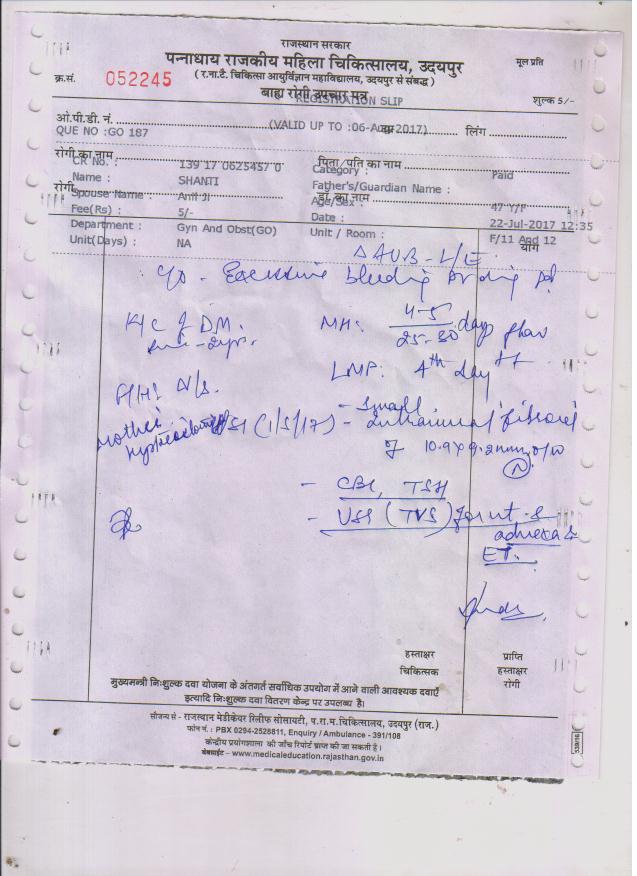 राजस्थान सरकार
पन्नाधाय राजकीय महिला चिकित्सालय, उदयपुर
मूल प्रति
क्र.सं. 052245
( र.ना.टै. चिकित्सा आयुर्विज्ञान महाविद्यालय, उदयपुर से संबद्ध )
बाह्य रोगी उपचार पत्र
REGISTRATION SLIP
शुल्क 5/-
ओ.पी.डी. नं. (VALID UP TO :06-Aug-2017) लिंग
QUE NO :GO 187
रोगी का नाम पिता/पति का नाम
CR No. : 139 17 0625457 0 Category : Paid
Name : SHANTI Father's/Guardian Name :
रोगी डॉ. का नाम
Spouse Name : Anil Ji Age/Sex : 47 Y/F
Fee(Rs) : 5/- Date : 22-Jul-2017 12:35
Department : Gyn And Obst(GO) Unit / Room : F/11 And 12
Unit(Days) : NA योग
AUB-L/E
C/o - Excessive bleeding during
K/c of DM. MH: 4-5/25-30 days flow
since - 2yrs. LMP: 4th day ++
F/H: N/S. - Small
Mother USG (1/5/17) - intramural fibroid
of 10.9x9.2mm
(N)
- CBC, TSH
- USG (TVS) for ut. &
adnexa &
ET.
हस्ताक्षर प्राप्ति
चिकित्सक हस्ताक्षर
रोगी
मुख्यमन्त्री निःशुल्क दवा योजना के अंतर्गत सर्वाधिक उपयोग में आने वाली आवश्यक दवाएँ
इत्यादि निःशुल्क दवा वितरण केन्द्र पर उपलब्ध है।
सौजन्य से - राजस्थान मेडीकेयर रिलीफ सोसायटी, प.रा.म.चिकित्सालय, उदयपुर (राज.)
फोन नं. : PBX 0294-2528811, Enquiry / Ambulance - 391/108
केन्द्रीय प्रयोगशाला की जाँच रिपोर्ट प्राप्त की जा सकती है।
वेबसाईट – www.medicaleducation.rajasthan.gov.in